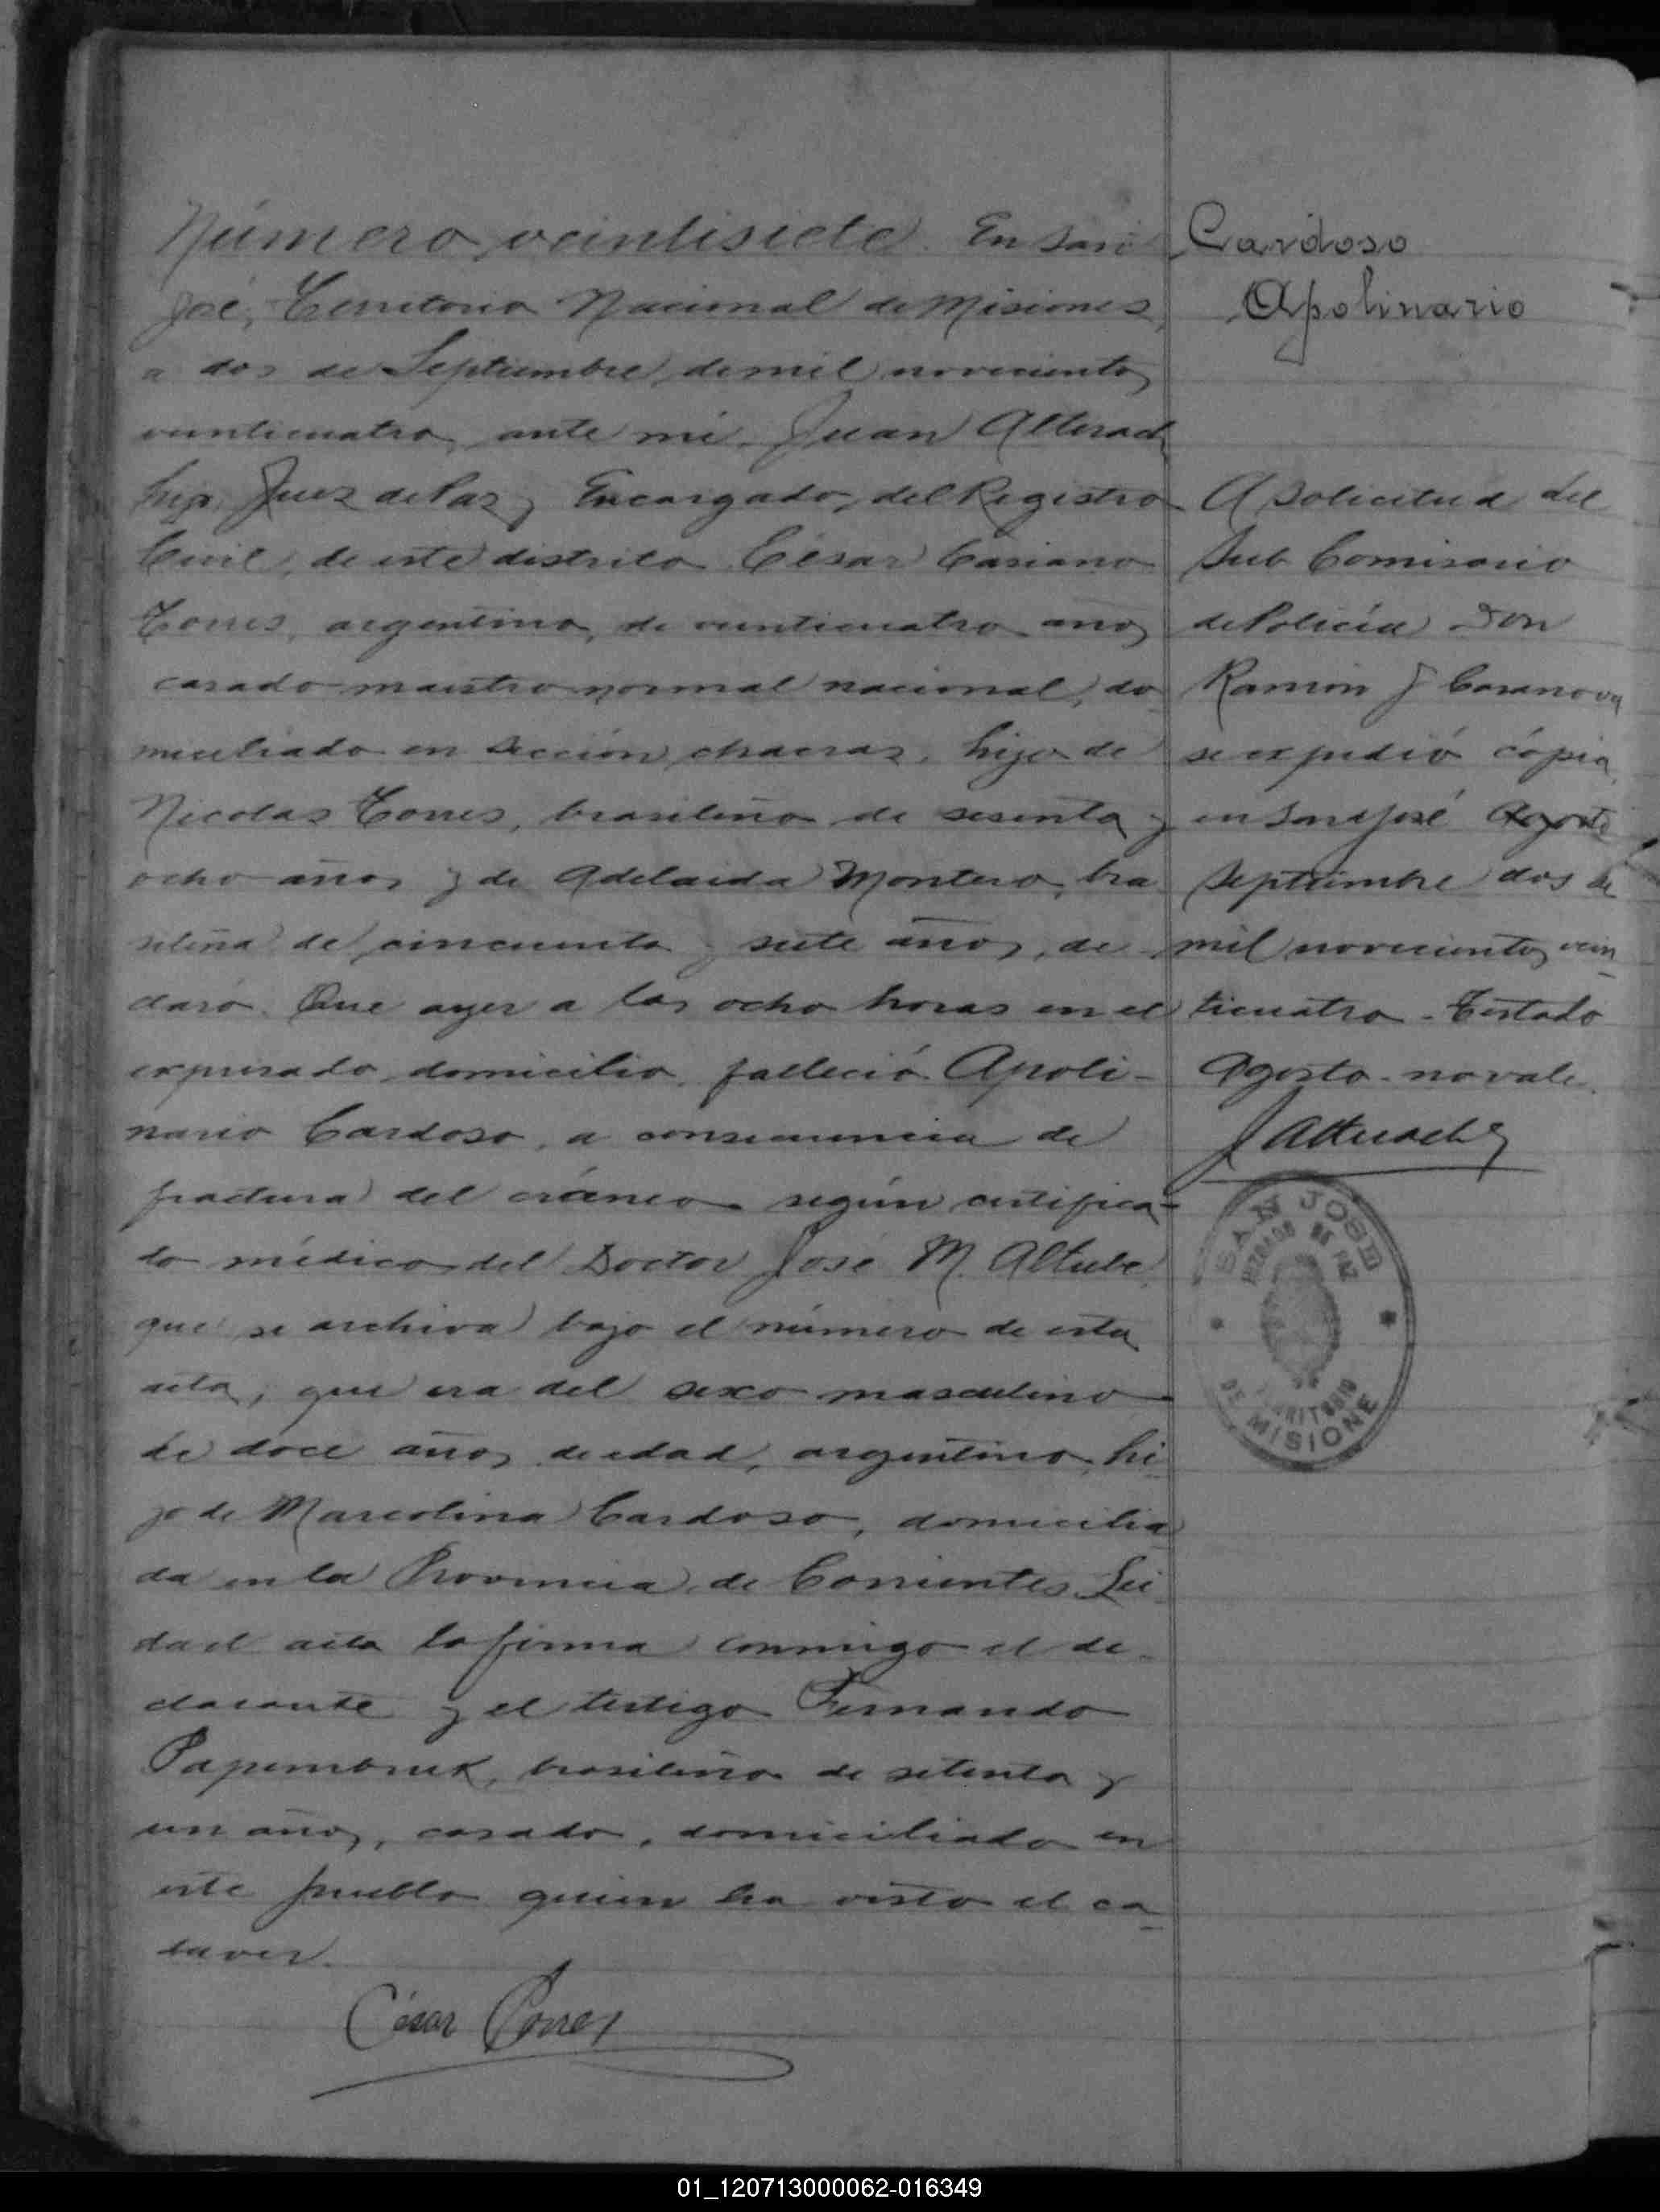 Número veintisiete. En San
José, Territorio Nacional de Misiones,
a dos de Septiembre de mil novecientos
veinticuatro, ante mí Juan Alterach
hijo, Juez de Paz y Encargado del Registro
Civil, de este distrito César Casiano
Torres, argentino, de veinticuatro años
casado maestro normal nacional, do-
miciliado en Sección chacras, hijo de
Nicolas Torres, brasileño de sesenta y
ocho años y de Adelaida Montero, bra
sileña de cincuenta y siete años, de-
claró. Que ayer a las ocho horas en el
expresado domicilio, falleció Apoli-
nario Cardoso, a consecuencia de
fractura del cráneo según certifica-
do médico del Doctor José M. Altube,
que se archiva bajo el número de esta
acta, que era del sexo masculino
de doce años de edad, argentino, hi-
jo de Marcolina Cardoso, domicilia
da en la Provincia de Corrientes. Lei-
da el acta la firma conmigo el de-
clarante y el testigo Fernando
brasileño de setenta y
un años, casado, domiciliado en
este pueblo quien ha visto el ca-
daver.
César Torres
Cardoso
Apolinario
A solicitud del
Sub Comisario
de Policía Don
Ramón J Casanova
se expidió cópia
en San José Agosto
Septiembre dos de
mil novecientos vein-
ticuatro - Testado
Agosto - no vale.
J Alterach
SAN JOSE
JUZGADO DE PAZ
TERRITORIO
DE MISIONE
01_120713000062-016349